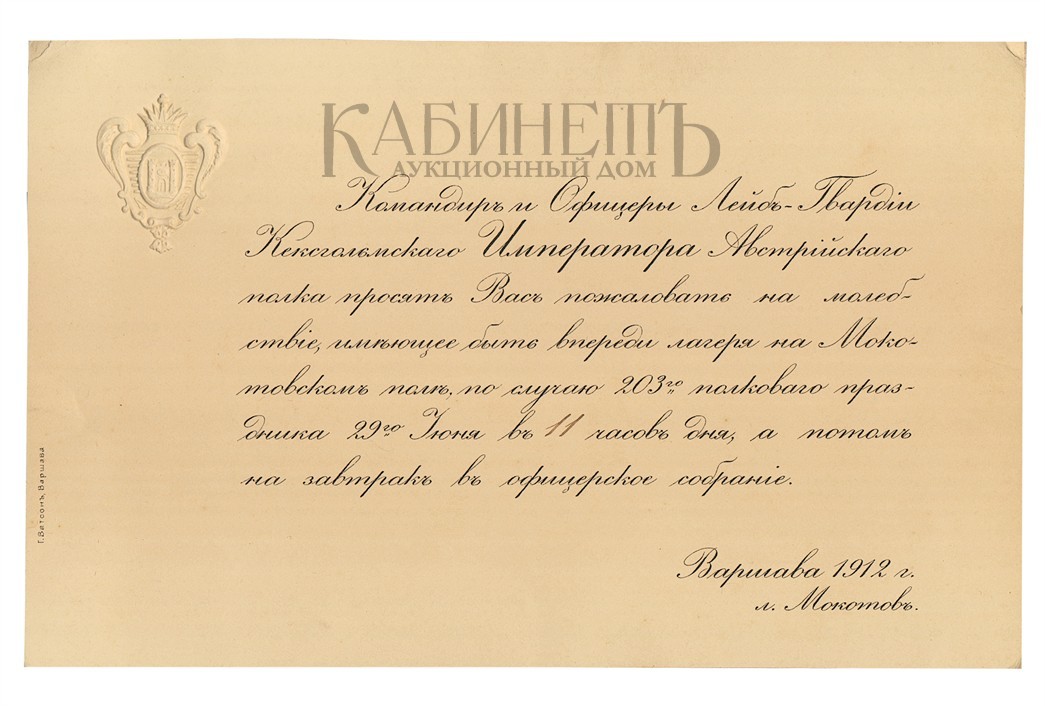 КАБИНЕТЪ
АУКЦИОННЫЙ ДОМ
Командиръ и Офицеры Лейбъ-Гвардіи
Кексгольмскаго Императора Австрійскаго
полка просятъ Васъ пожаловать на молеб-
ствіе, имѣющее быть впереди лагеря на Моко-
товскомъ полѣ, по случаю 203го полковаго праз-
дника 29го Іюня въ 11 часовъ дня, а потомъ
на завтракъ въ офицерское собраніе.
Варшава 1912 г.
л. Мокотовъ.
Г. Ватсонъ, Варшава